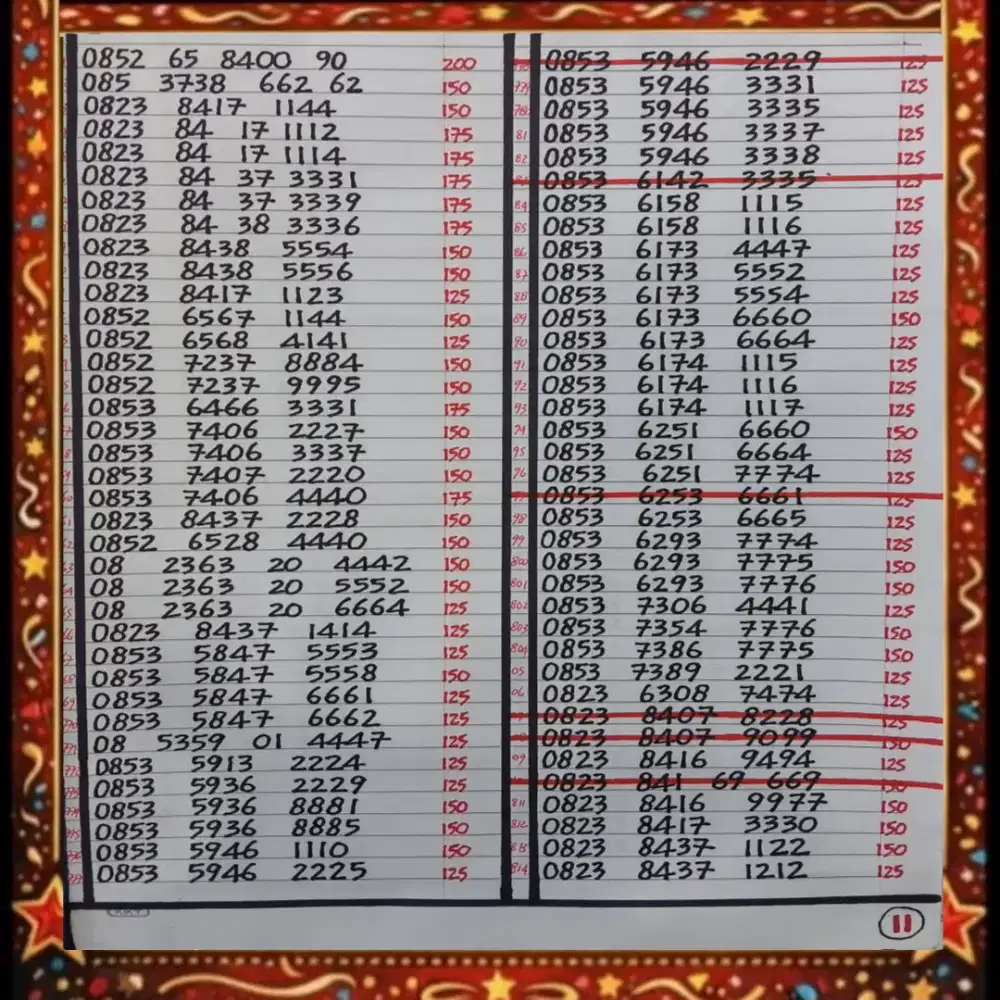 0852 65 8400 90 200
085 3738 662 62 150
0823 8417 1144 150
0823 84 17 1112 175
0823 84 17 1114 175
0823 84 37 3331 175
0823 84 37 3339 175
0823 84 38 3336 175
0823 8438 5554 150
0823 8438 5556 150
0823 8417 1123 125
0852 6567 1144 150
0852 6568 4141 125
0852 7237 8884 150
0852 7237 9995 150
0853 6466 3331 175
0853 7406 2227 150
0853 7406 3337 150
0853 7407 2220 150
0853 7406 4440 175
0823 8437 2228 150
0852 6528 4440 150
08 2363 20 4442 150
08 2363 20 5552 150
08 2363 20 6664 125
0823 8437 1414 125
0853 5847 5553 125
0853 5847 5558 150
0853 5847 6661 125
0853 5847 6662 125
08 5359 01 4447 125
0853 5913 2224 125
0853 5936 2229 125
0853 5936 8881 150
0853 5936 8885 150
0853 5946 1110 150
0853 5946 2225 125
0853 5946 2229 125
0853 5946 3331 125
0853 5946 3335 125
81 0853 5946 3337 125
82 0853 5946 3338 125
0853 6142 3335 125
84 0853 6158 1115 125
85 0853 6158 1116 125
86 0853 6173 4447 125
87 0853 6173 5552 125
88 0853 6173 5554 125
89 0853 6173 6660 150
90 0853 6173 6664 125
91 0853 6174 1115 125
92 0853 6174 1116 125
93 0853 6174 1117 125
94 0853 6251 6660 150
95 0853 6251 6664 125
96 0853 6251 7774 125
0853 6253 6661 125
98 0853 6253 6665 125
99 0853 6293 7774 125
800 0853 6293 7775 150
801 0853 6293 7776 150
802 0853 7306 4441 125
803 0853 7354 7776 150
804 0853 7386 7775 150
05 0853 7389 2221 125
06 0823 6308 7474 125
0823 8407 8228 125
0823 8407 9099 150
09 0823 8416 9494 125
0823 841 69 669 150
811 0823 8416 9977 150
812 0823 8417 3330 150
813 0823 8437 1122 150
814 0823 8437 1212 125
11